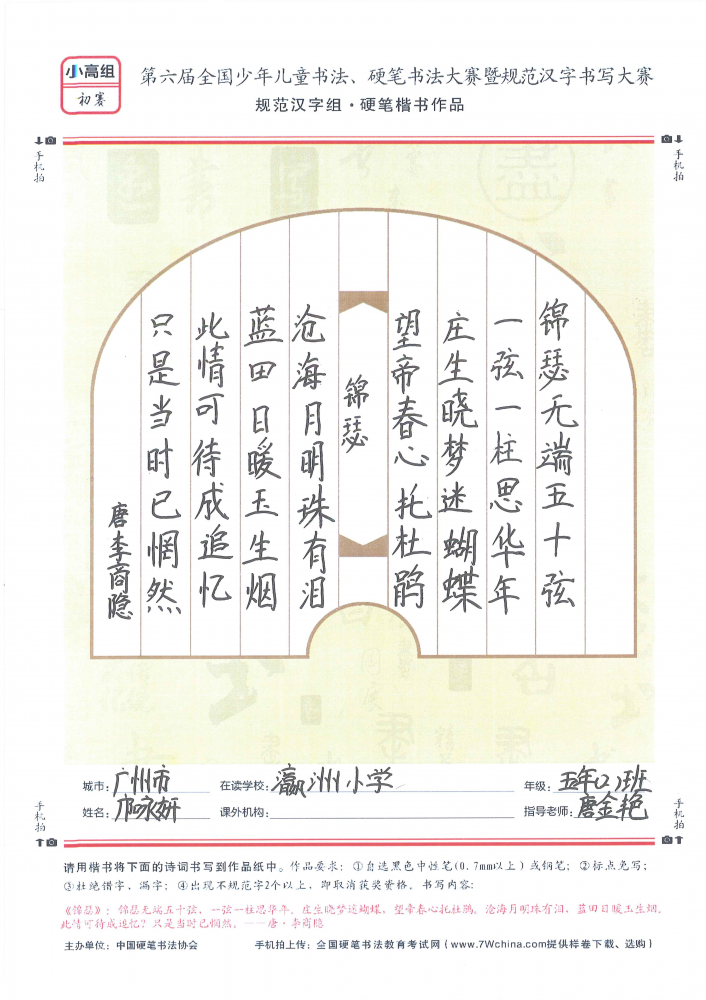 小高组
初赛
第六届全国少年儿童书法、硬笔书法大赛暨规范汉字书写大赛
规范汉字组·硬笔楷书作品
手机拍
手机拍
锦瑟无端五十弦
一弦一柱思华年
庄生晓梦迷蝴蝶
望帝春心托杜鹃
锦瑟
沧海月明珠有泪
蓝田日暖玉生烟
此情可待成追忆
只是当时已惘然
唐李商隐
城市：广州市 在读学校：瀛洲小学 年级：五年(2)班
姓名：邝咏妍 课外机构： 指导老师：唐金艳
手机拍
手机拍
请用楷书将下面的诗词书写到作品纸中。作品要求：①自选黑色中性笔(0.7mm以上)或钢笔；②标点免写；
③杜绝错字、漏字；④出现不规范字2个以上，即取消获奖资格。书写内容：
《锦瑟》：锦瑟无端五十弦，一弦一柱思华年。庄生晓梦迷蝴蝶，望帝春心托杜鹃。沧海月明珠有泪，蓝田日暖玉生烟。
此情可待成追忆？只是当时已惘然。——唐·李商隐
主办单位：中国硬笔书法协会 手机拍上传：全国硬笔书法教育考试网（www.7Wchina.com提供样卷下载、选购）